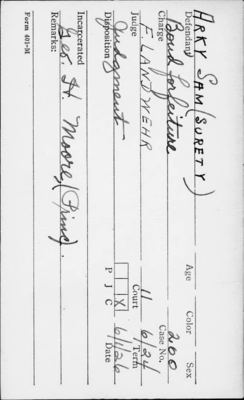 ARKY SAM (SURETY)
Defendant Age Color Sex
Bond forfeiture 200
Charge Case No.
F LANDWEHR 11 6/24
Judge Court Term
Judgment X 6/1/26
Disposition P J C Date
Incarcerated
Geo. H. Moore, (Princ).
Remarks:
Form 401-M